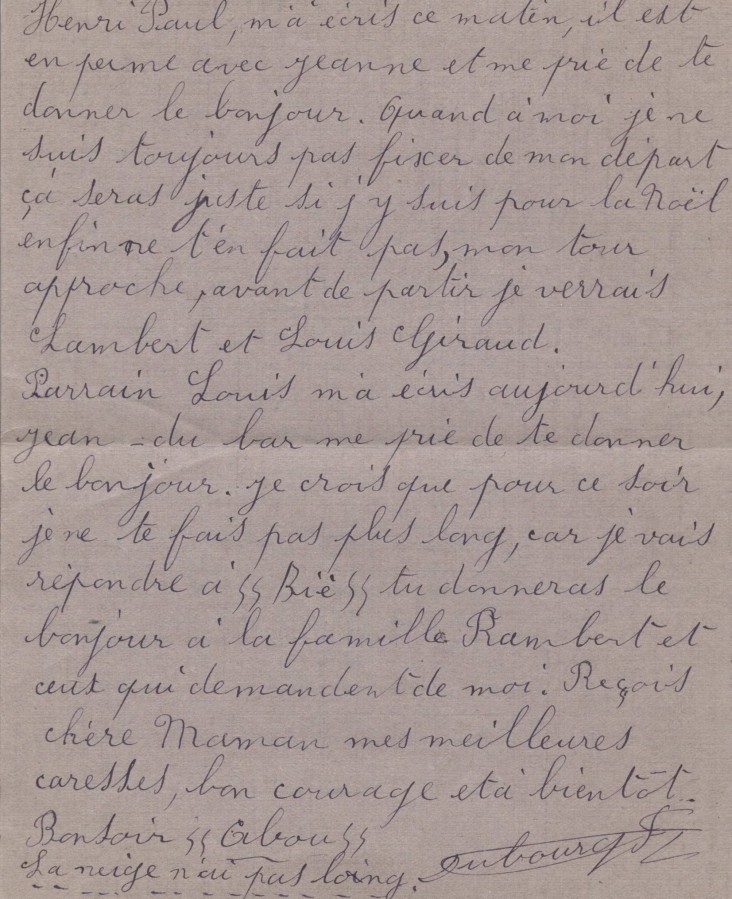 Henri Paul, m'a écris ce matin, il est
en perme avec jeanne et me prie de te
donner le bonjour. Quand à moi je ne
suis toujours pas fixer de mon départ
çà seras juste si j'y suis pour la Noël
enfin ne t'en fait pas, mon tour
approche, avant de partir je verrais
Lambert et Louis Giraud.
Parrain Louis m'a écris aujourd'hui,
jean - du bar me prie de te donner
le bonjour. je crois que pour ce soir
je ne te fais pas plus long, car je vais
répondre à "Bié" tu donneras le
bonjour à la famille Rambert et
ceux qui demandent de moi. Reçois
chère Maman mes meilleures
caresses, bon courage et à bientôt.
Bonsoir "Abou"
La neige n'ai pas loing. Dubourg